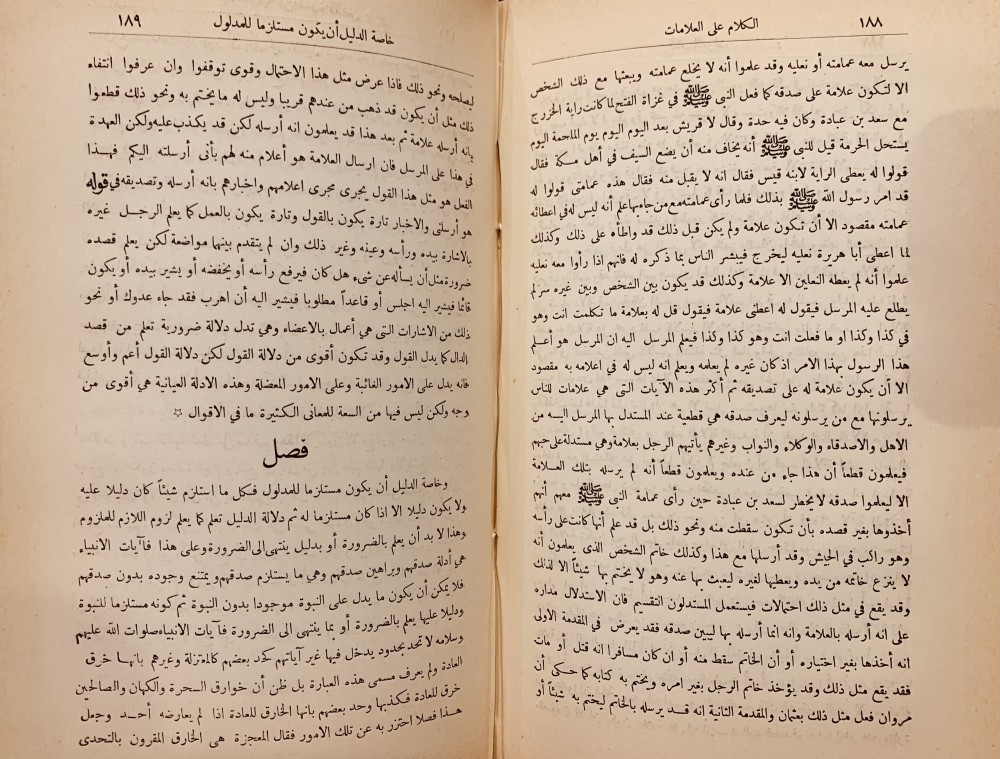 ١٨٨
الكلام على العلامات
يرسل معه عمامته أو نعليه وقد علموا أنه لا يخلع عمامته ويبعثها مع ذلك الشخص
الا لتكون علامة على صدقه كما فعل النبي ﷺ في غزاة الفتح لما كانت راية الخزرج
مع سعد بن عبادة وكان فيه حدة وقال لا قريش بعد اليوم اليوم يوم الملحمة اليوم
يستحل الحرمة قيل للنبي ﷺ أنه يخاف منه أن يضع السيف في أهل مكة فقال
قولوا له يعطى الراية لابنه قيس فقال انه لا يقبل منه فقال هذه عمامتى قولوا له
قد امر رسول الله ﷺ بذلك فلما رأى عمامته مع من جاء بها علم أنه ليس له في اعطائه
عمامته مقصود الا أن تكون علامة ولم يكن قبل ذلك قد واطأه على ذلك وكذلك
لما اعطى أبا هريرة نعليه ليخرج فيبشر الناس بما ذكره له فانهم اذا رأوا معه نعليه
علموا أنه لم يعطه النعلين الا علامة وكذلك قد يكون بين الشخص وبين غيره سر لم
يطلع عليه المرسل فيقول له اعطنى علامة فيقول قل له بعلامة ما تكلمت انت وهو
في كذا وكذا او ما فعلت انت وهو كذا وكذا فيعلم المرسل اليه ان المرسل هو أعلم
هذا الرسول بهذا الامر اذ كان غيره لم يعلمه ويعلم انه ليس له في اعلامه به مقصود
الا أن يكون علامة له على تصديقه ثم أكثر هذه الآيات التى هي علامات للناس
يرسلونها مع من يرسلونه ليعرف صدقه هي قطعية عند المستدل بها المرسل اليه من
الاهل والاصدقاء والوكلاء والنواب وغيرهم يأتيهم الرجل بعلامة وهي مستدلة على جبهم
فيعلمون قطعاً أن هذا جاء من عنده ويعلمون قطعاً أنه لم يرسله بتلك العلامة
الا ليعلموا صدقه لا يخطر لسعد بن عبادة حين رأى عمامة النبي ﷺ معهم أنهم
أخذوها بغير قصده بأن تكون سقطت منه ونحو ذلك بل قد علم أنها كانت على رأسه
وهو راكب في الجيش وقد أرسلها مع هذا وكذلك خاتم الشخص الذى يعلمون أنه
لا ينزع خاتمه من يده ويعطيها لغيره ليعبث بها عنه وهو لا يختم بها شيئاً الا لذلك
وقد يقع في مثل ذلك احتمالات فيستعمل المستدلون التقسيم فان الاستدلال مداره
على انه أرسله بالعلامة وانه انما أرسله بها ليبين صدقه فقد يعرض في المقدمة الاولى
انه أخذها بغير اختياره أو أن الخاتم سقط منه أو ان كان مسافرا انه قتل أو مات
فقد يقع مثل ذلك وقد يؤخذ خاتم الرجل بغير امره ويختم به كتابه كما حكى أن
مروان فعل مثل ذلك بعثمان والمقدمة الثانية انه قد يرسله بالخاتم ليختم به شيئاً أو
خاصة الدليل أن يكون مستلزما للمدلول
١٨٩
لصلحه ونحو ذلك فاذا عرض مثل هذا الاحتمال وقوى توقفوا وان عرفوا انتفاء
ذلك مثل أن يكون قد ذهب من عندهم قريبا وليس له ما يختم به ونحو ذلك قطعوا
بانه أرسله علامة ثم بعد هذا قد يعلمون انه أرسله لكن قد يكذب عليه ولكن العهدة
في هذا على المرسل فان ارسال العلامة هو أعلام منه لهم بأنى أرسلته اليكم فهذا
الفعل هو مثل هذا القول يجرى مجرى اعلامهم واخبارهم بانه أرسله وتصديقه في قوله
هو أرسلنى والاخبار تارة يكون بالقول وتارة يكون بالعمل كما يعلم الرجل غيره
بالاشارة بيده ورأسه وعينه وغير ذلك وان لم يتقدم بينهما مواضعة لكن يعلم قصده
ضرورة مثل أن يسأله عن شىء هل كان فيرفع رأسه أو يخفضه أو يشير بيده أو يكون
قائما فيشير اليه اجلس أو قاعداً مطلوبا فيشير اليه أن اهرب فقد جاء عدوك أو نحو
ذلك من الاشارات التى هي أعمال بالاعضاء وهي تدل دلالة ضرورية تعلم من قصد
الدال كما يدل القول وقد تكون أقوى من دلالة القول لكن دلالة القول أعم وأوسع
فانه يدل على الامور الغائبة وعلى الامور المعضلة وهذه الادلة العيانية هي أقوى من
وجه ولكن ليس فيها من السعة للمعانى الكثيرة ما في الاقوال ☆
فصل
وخاصة الدليل أن يكون مستلزما للمدلول فكل ما استلزم شيئاً كان دليلا عليه
ولا يكون دليلا الا اذا كان مستلزما له ثم دلالة الدليل تعلم كما يعلم لزوم اللازم للملزوم
وهذا لا بد أن يعلم بالضرورة أو بدليل ينتهى الى الضرورة وعلى هذا فآيات الانبياء
هي أدلة صدقهم وبراهين صدقهم وهي ما يستلزم صدقهم ويمتنع وجوده بدون صدقهم
فلا يمكن أن يكون ما يدل على النبوة موجودا بدون النبوة ثم كونه مستلزما للنبوة
ودليلا عليها يعلم بالضرورة أو بما ينتهى الى الضرورة فآيات الانبياء صلوات الله عليهم
وسلامه لا تحد بحدود يدخل فيها غير آياتهم كحد بعضهم كالمعتزلة وغيرهم بانها خرق
العادة ولم يعرف مسمى هذه العبارة بل ظن أن خوارق السحرة والكهان والصالحين
خرق للعادة فكذبها وحد بعضهم بانها الخارق للعادة اذا لم يعارضه أحد وجعل
هذا فصلا احترز به عن تلك الامور فقال المعجزة هى الخارق المقرون بالتحدى